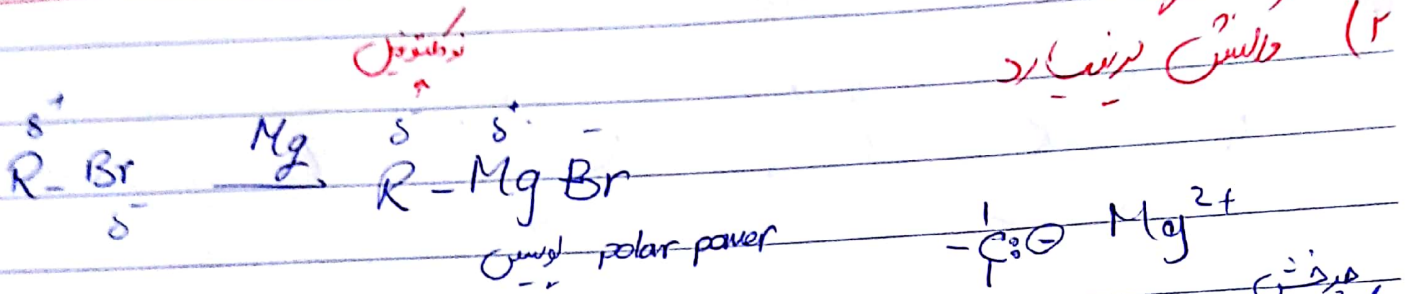 ۲) واکنش گرینیارد
نوکلئوفیل
δ+ δ δ+ -
R - Br Mg R - Mg Br
δ-
لوییس polar power
- C: ⊖ Mg 2+
چرخش